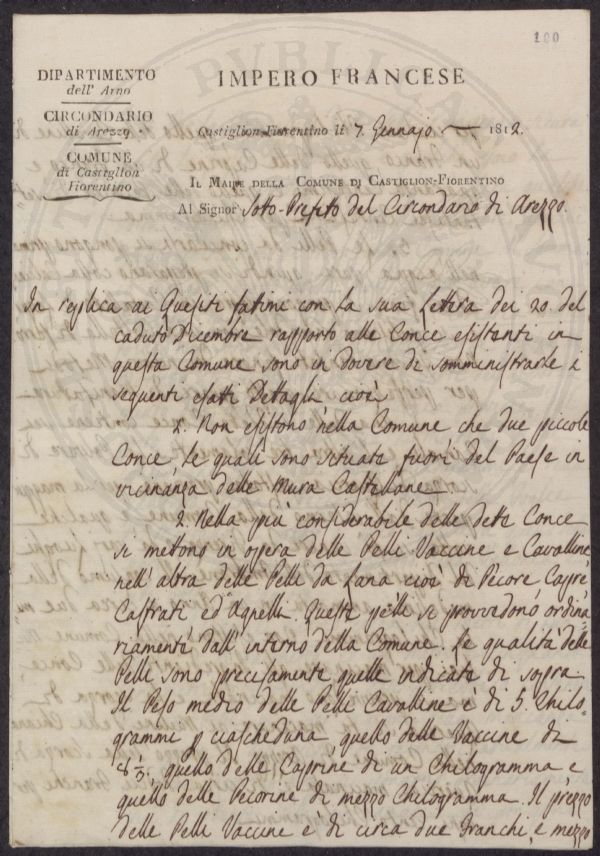 100
DIPARTIMENTO
dell' Arno
CIRCONDARIO
di Arezzo.
COMUNE
di Castiglion
Fiorentino
IMPERO FRANCESE
Castiglion-Fiorentino li 7. Gennajo 1812.
IL MAIRE DELLA COMUNE DI CASTIGLION-FIORENTINO
Al Signor Sotto-Prefetto del Circondario di Arezzo.
In replica ai Quesiti fatimi con la sua Lettera dei 20 del
caduto Dicembre rapporto alle Conce esistenti in
questa Comune sono in dovere di somministrarle i
seguenti esatti Dettagli cioè
1. Non esistono nella Comune che due piccole
Conce, le quali sono situate fuori del Paese in
vicinanza delle Mura Castellane
2. Nella più considerabile delle dette Conce
si mettono in opera delle Pelli Vaccine e Cavalline
nell' altra delle Pelli da Lana cioè di Pecore Capre
Castrati ed Agnelli. Queste pelli si provvedono ordina
riamente dall' interno della Comune. Le qualità delle
Pelli sono precisamente quelle indicate di sopra
Il Peso medio delle Pelli Cavalline è di 5. Chilo-
grammi p ciascheduna quello delle Vaccine di
8⅓. quello delle Caprine di un Chilogramma e
quello delle Pecorine di mezzo Chilogramma. Il prezzo
delle Pelli Vaccine è di circa due Franchi, e mezzo
PVBLICA